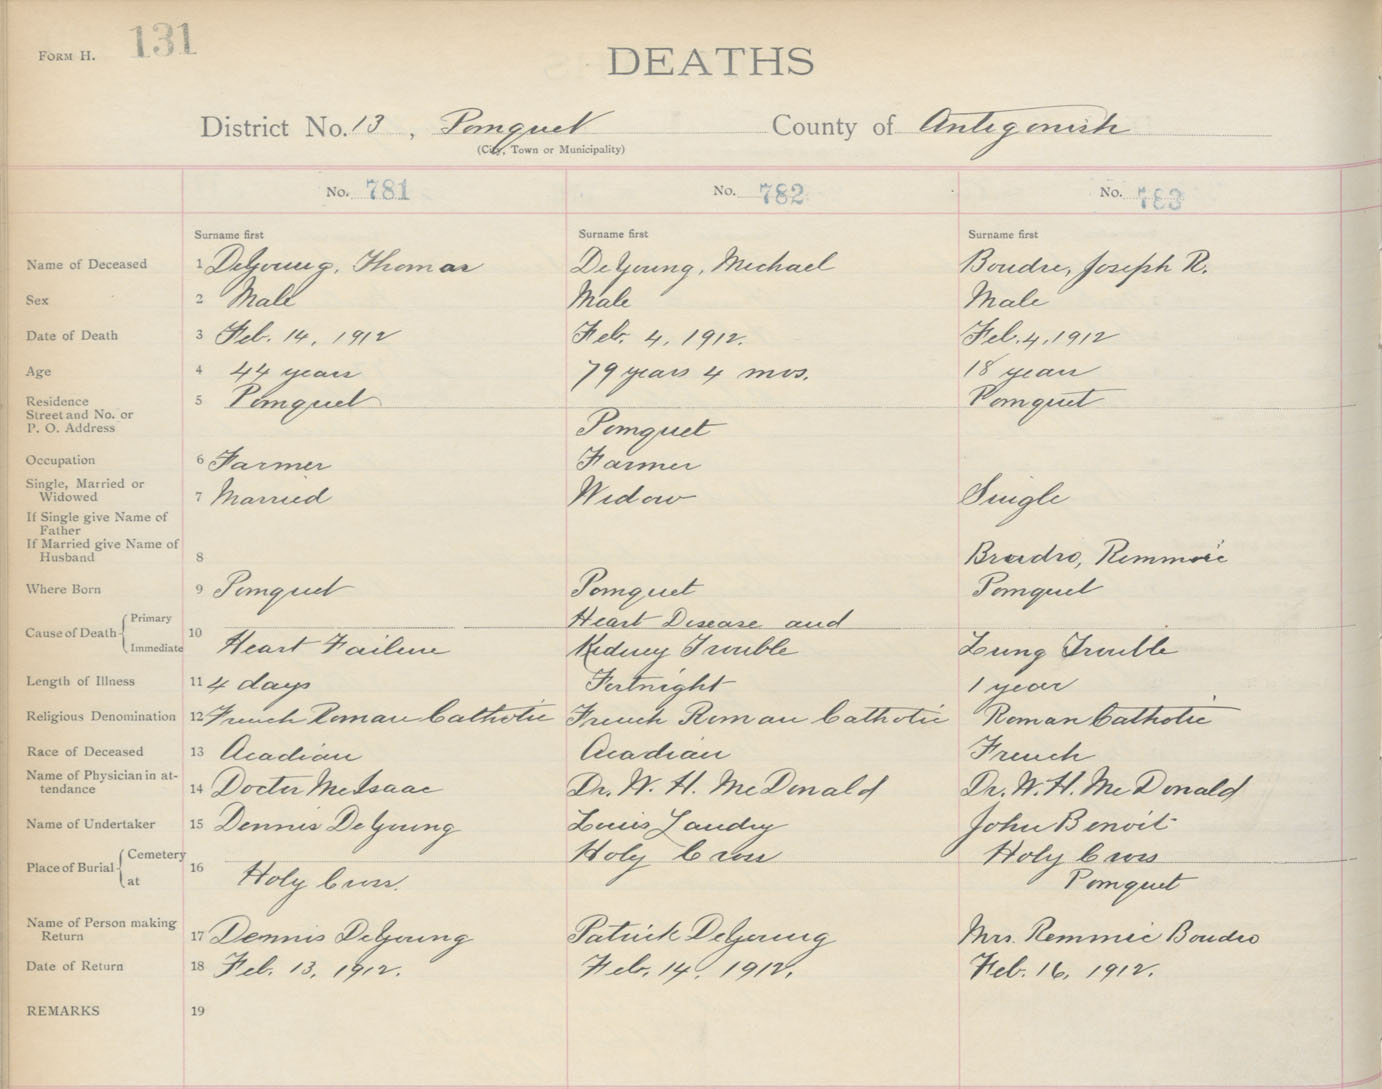 FORM H. 131
DEATHS
District No. 13, Pomquet County of Antigonish
(City, Town or Municipality)
No. 781 No. 782 No. 783
Surname first Surname first Surname first
Name of Deceased 1 DeYoung, Thomas DeYoung, Michael Boudro, Joseph R.
Sex 2 Male Male Male
Date of Death 3 Feb. 14, 1912 Feb. 4, 1912. Feb. 4, 1912
Age 4 44 years 79 years 4 mos. 18 years
Residence 5 Pomquet Pomquet
Street and No. or
P. O. Address Pomquet
Occupation 6 Farmer Farmer
Single, Married or
Widowed 7 Married Widow Single
If Single give Name of
Father
If Married give Name of
Husband 8 Boudro, Remmie
Where Born 9 Pomquet Pomquet Pomquet
Primary Heart Disease and
Cause of Death 10
Immediate Heart Failure Kidney Trouble Lung Trouble
Length of Illness 11 4 days Fortnight 1 year
Religious Denomination 12 French Roman Catholic French Roman Catholic Roman Catholic
Race of Deceased 13 Acadian Acadian French
Name of Physician in at-
tendance 14 Doctor McIsaac Dr. W. H. McDonald Dr. W. H. McDonald
Name of Undertaker 15 Dennis DeYoung Louis Landry John Benoit
Cemetery Holy Cross Holy Cross
Place of Burial 16
at Holy Cross. Pomquet
Name of Person making
Return 17 Dennis DeYoung Patrick DeYoung Mrs. Remmie Boudro
Date of Return 18 Feb. 13, 1912. Feb. 14, 1912. Feb. 16, 1912.
REMARKS 19